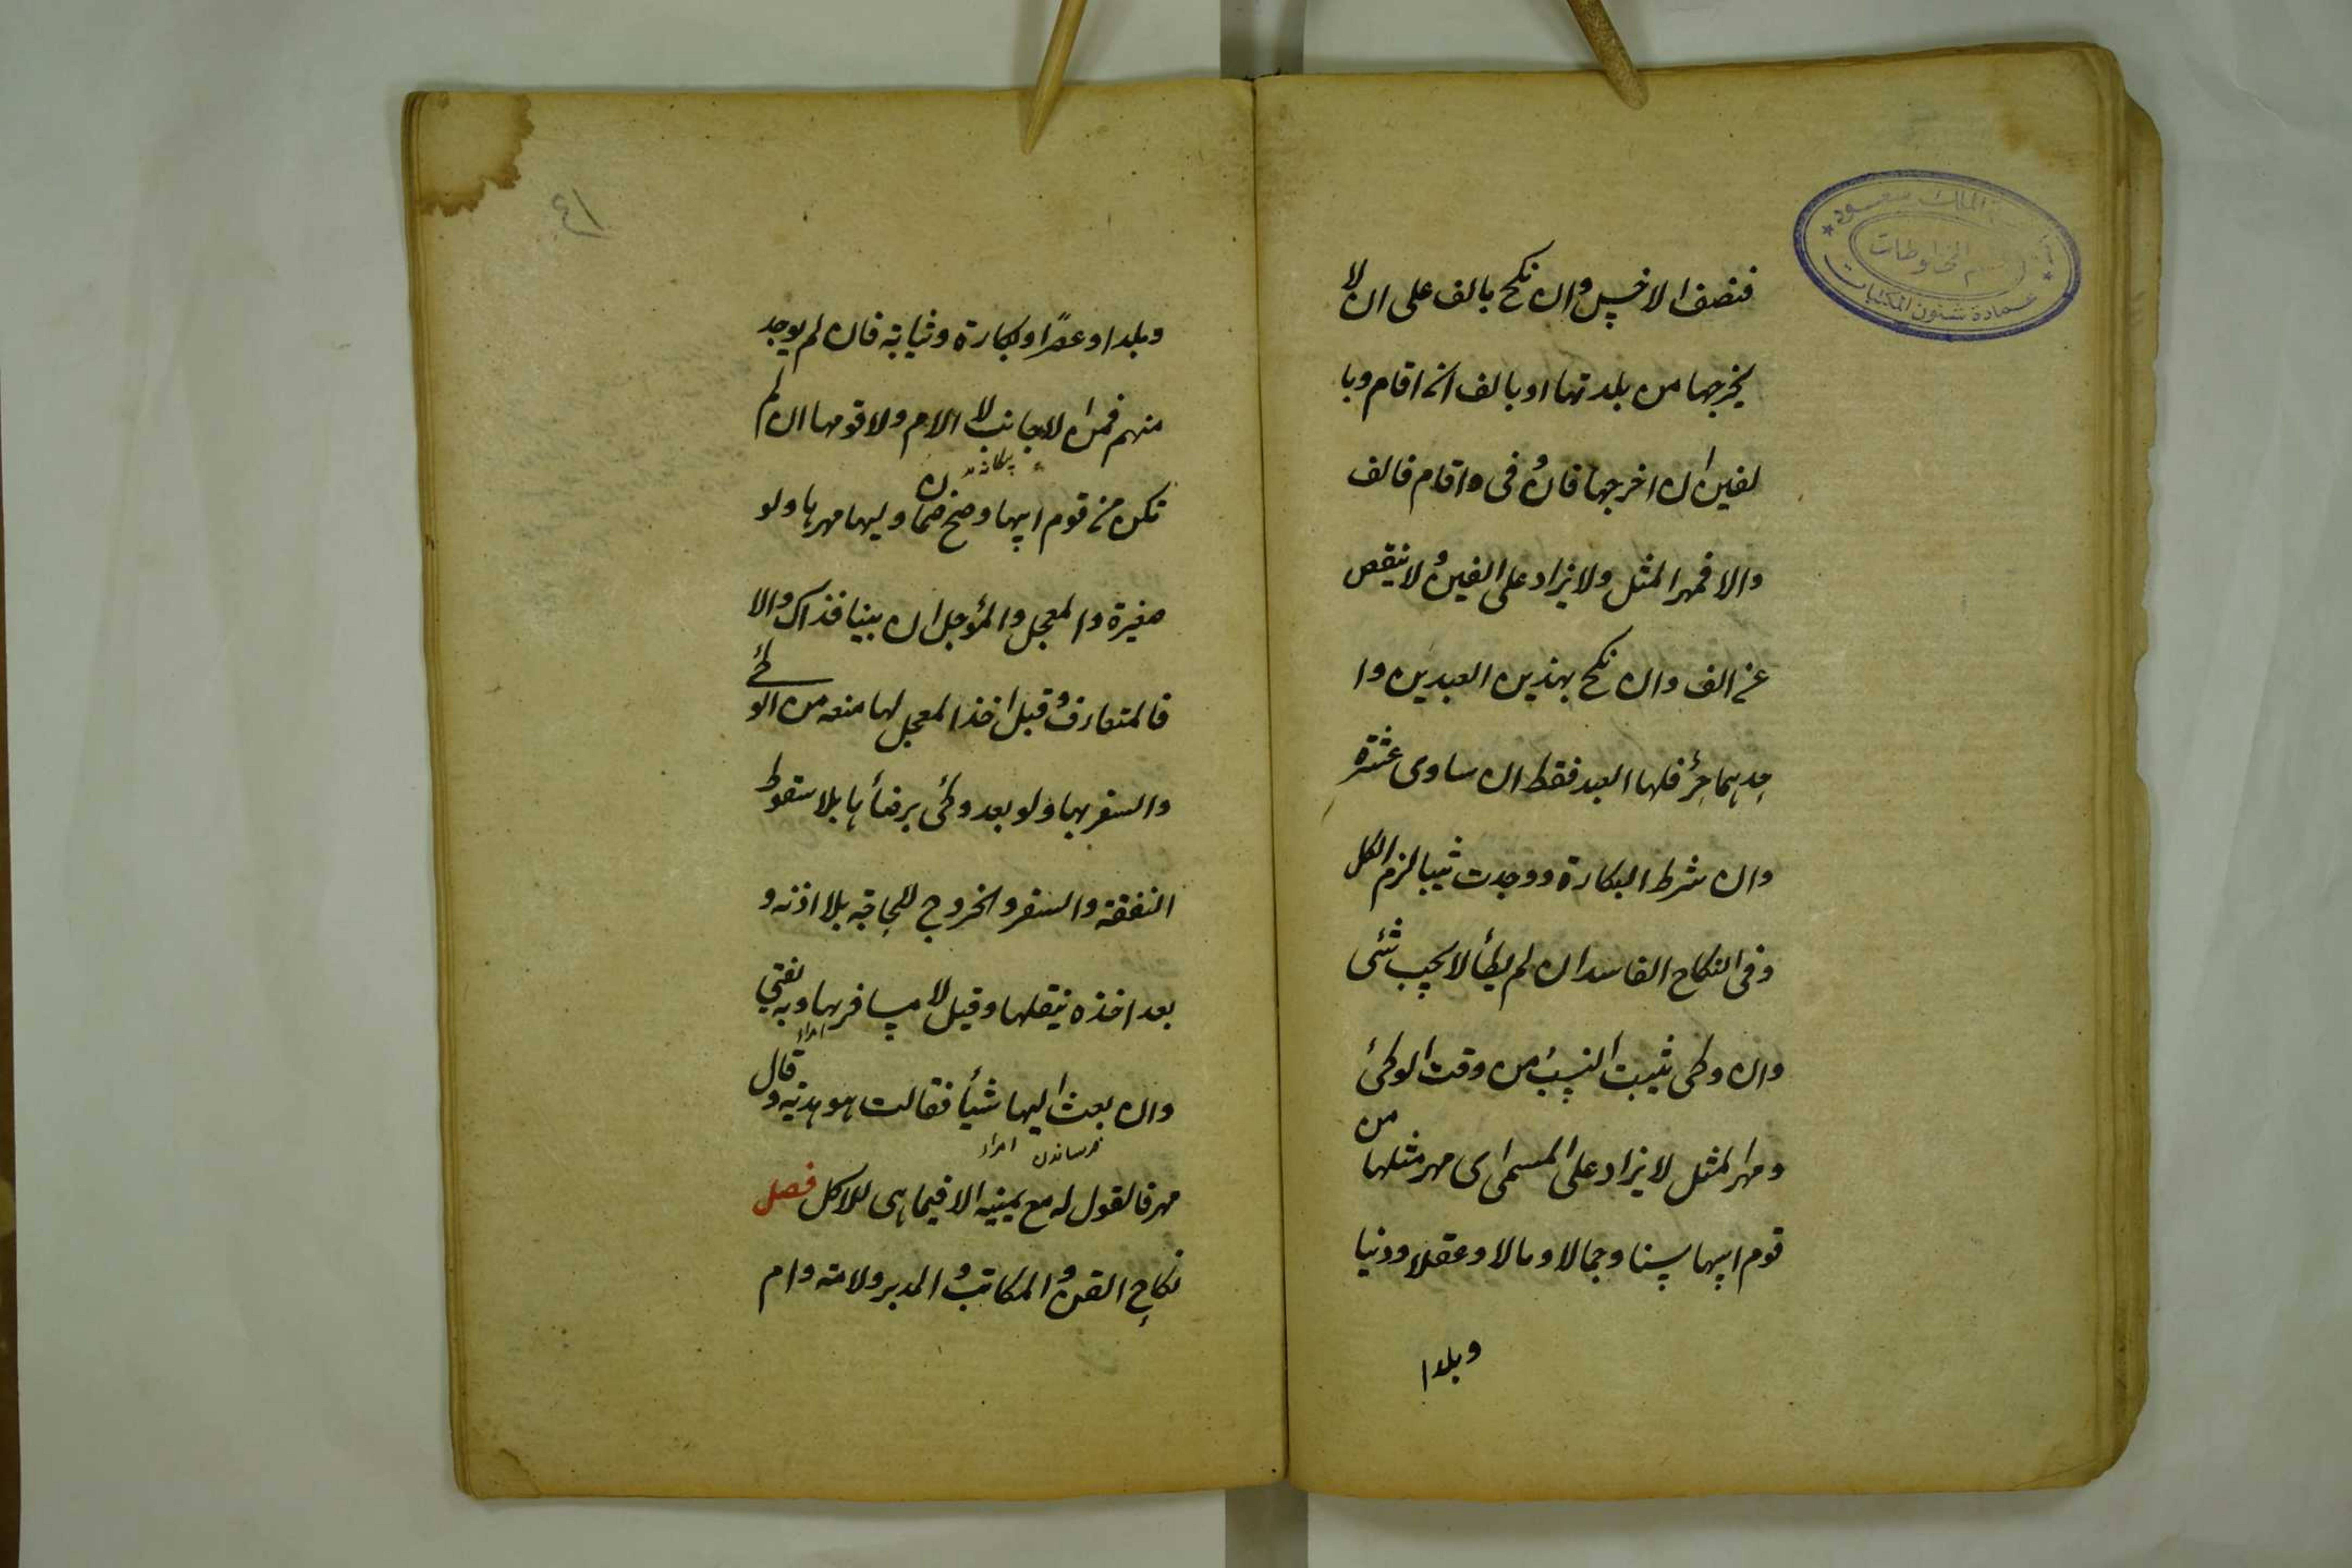 جامعة الملك سعود
قسم المخطوطات
عمادة شئون المكتبات
فنصف الاخس وان نكح بالف على ان لا
يخرجها من بلدتها او بالف ان اقام وبا
لفين ان اخرجها فان وفى واقام فالف
والا فمهر المثل ولا يزاد على الفين ولا ينقص
عن الف وان نكح بهذين العبدين وا
حدهما حر فلها العبد فقط ان ساوى عشرة
وان شرط البكارة ووجدت ثيبا لزم الكل
وفى النكاح الفاسد ان لم يطأ لا يجب شئ
وان وطى ثبت النسب من وقت الوطئ
ومهر المثل لا يزاد على المسمى اى مهر مثلها من
قوم ابيها سنا وجمالا ومالا وعقلا ودينا
وبلدا
٤١
وبلدا وعصرا وبكارة وثيابة فان لم يوجد
منهم فمن الاجانب لا الام ولا قومها ان لم
تكن من قوم ابيها وصح ضمان وليها مهرها ولو
صغيرة والمعجل والمؤجل ان بينا فذاك والا
فالمتعارف وقبل اخذ المعجل لها منعه من الوطئ
والسفر بها ولو بعد وطئ برضأها بلا سقوط
النفقة والسفر والخروج للحاجة بلا اذنه و
بعد اخذه ينقلها وقيل لا يسافر بها وبه يفتى
وان بعث اليها شيأ فقالت هو هدية وقال
مهر فالقول له مع يمينه الا فيما هى للاكل فصل
نكاح القن والمكاتب والمدبر والامة وام